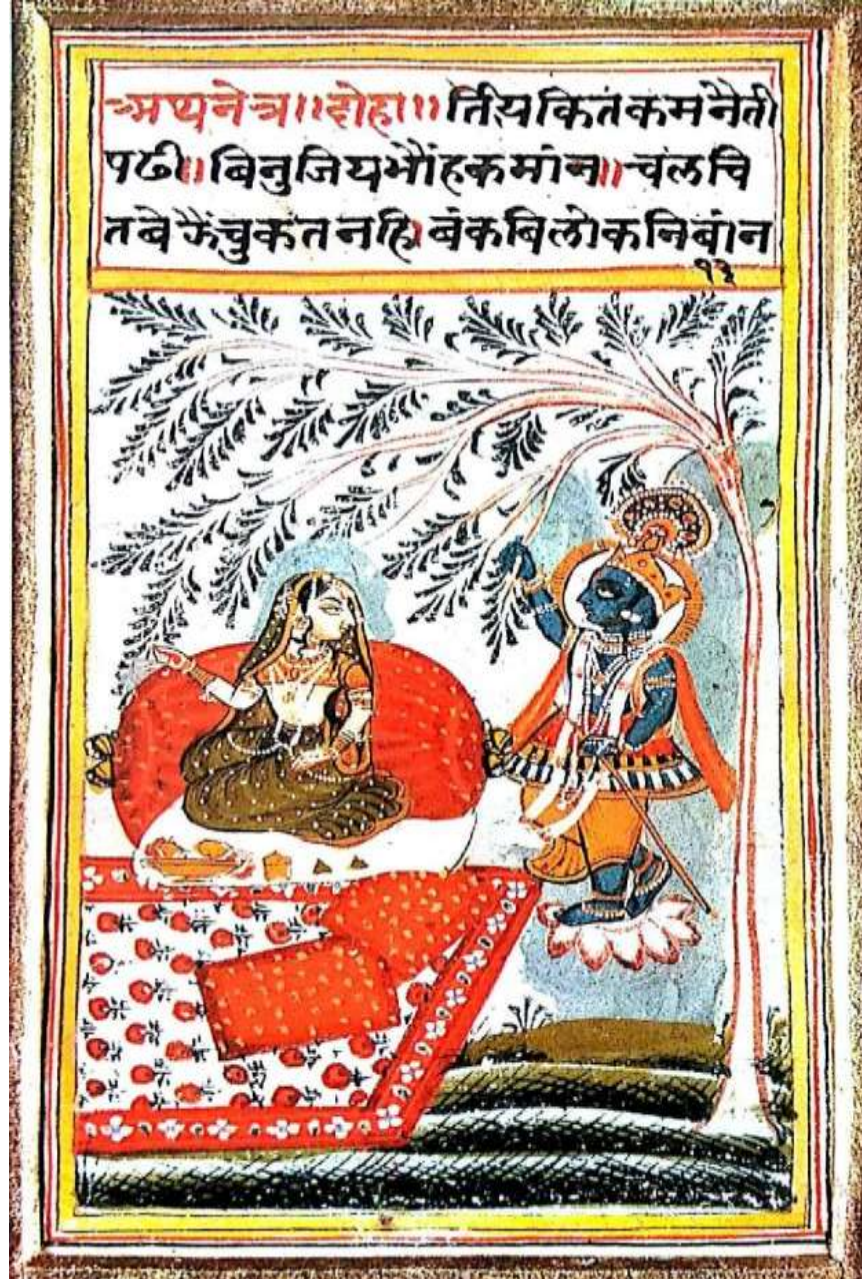 अथ नेत्र॥ दोहा॥ तिय कित कमनैती
पढी॥ बिनु जिय भौंह कमांन॥ चल चि
त बेझैं चुकत नहि। बंक बिलोकनि बांन
१३